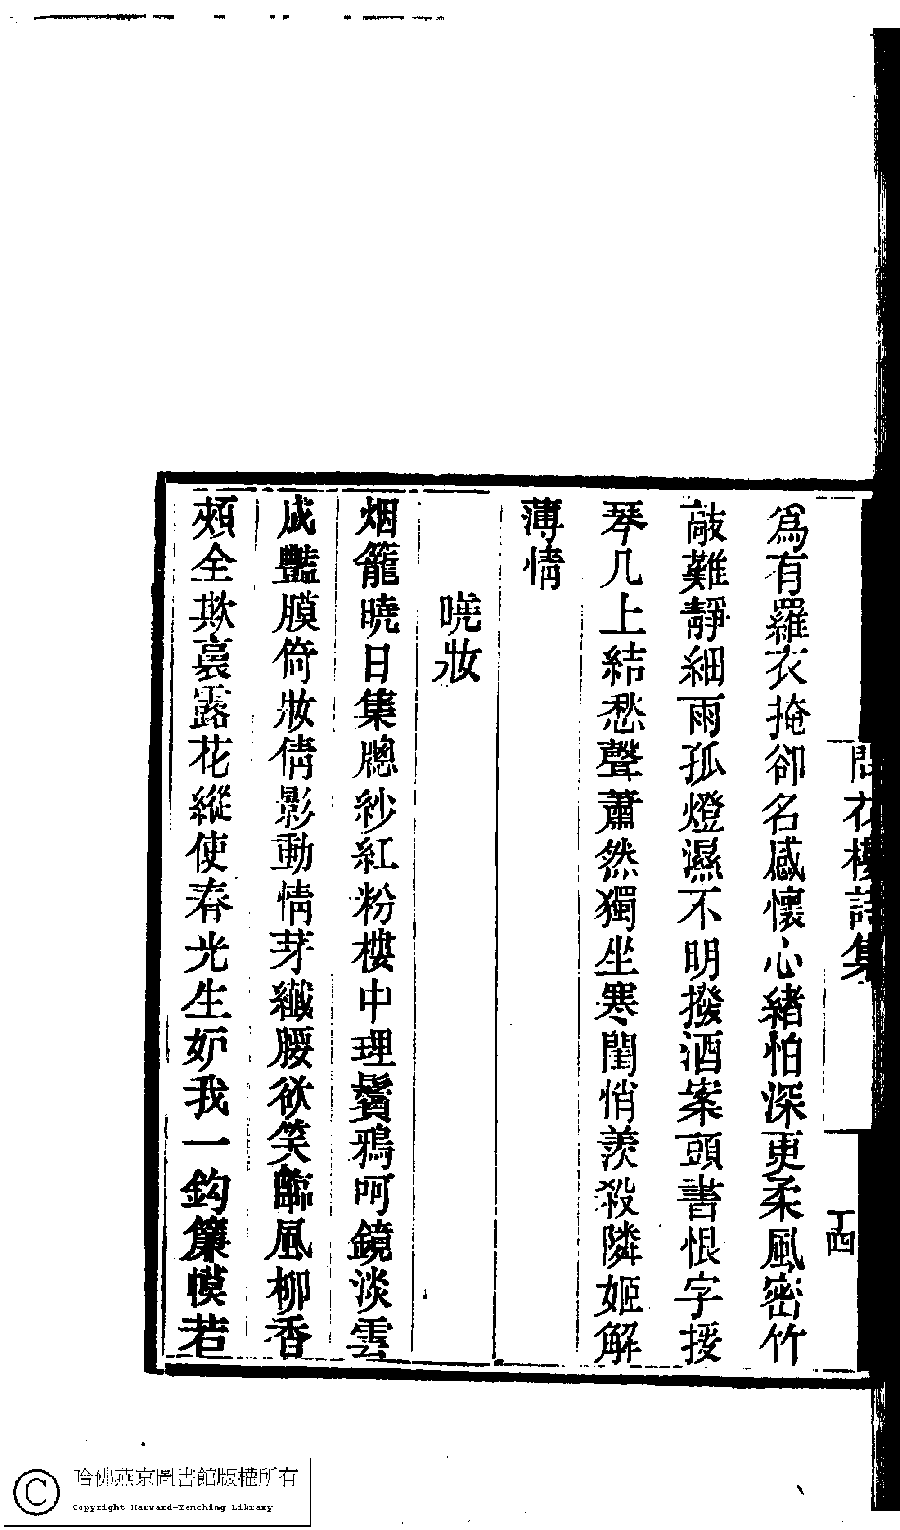 問花樓詩集
十四
為有羅衣掩卻名感懷心緒怕深更柔風密竹
敲難靜細雨孤燈濕不明撥酒案頭書恨字援
琴几上結愁聲蕭然獨坐寒閨悄羨殺隣姬解
薄情
曉妝
烟籠曉日集牕紗紅粉樓中理鬢鴉呵鏡淡雲
成豔膜倚妝倩影動情芽纖腰欲笑臨風柳香
頰全欺裛露花縱使春光生妒我一鈎簾幙若
哈佛燕京圖書館版權所有
Copyright Harvard-Yenching Library